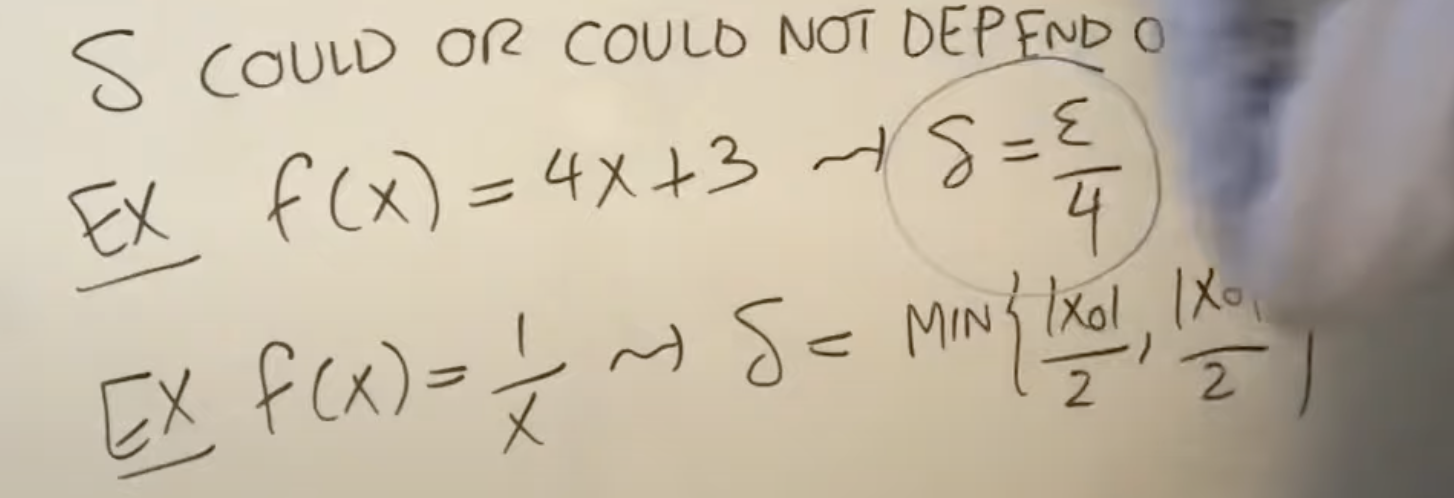 δ COULD OR COULD NOT DEPEND O
EX f(x) = 4x+3 ⇝ δ = ε/4
EX f(x) = 1/x ⇝ δ = MIN{|x₀|/2, |x₀|/2